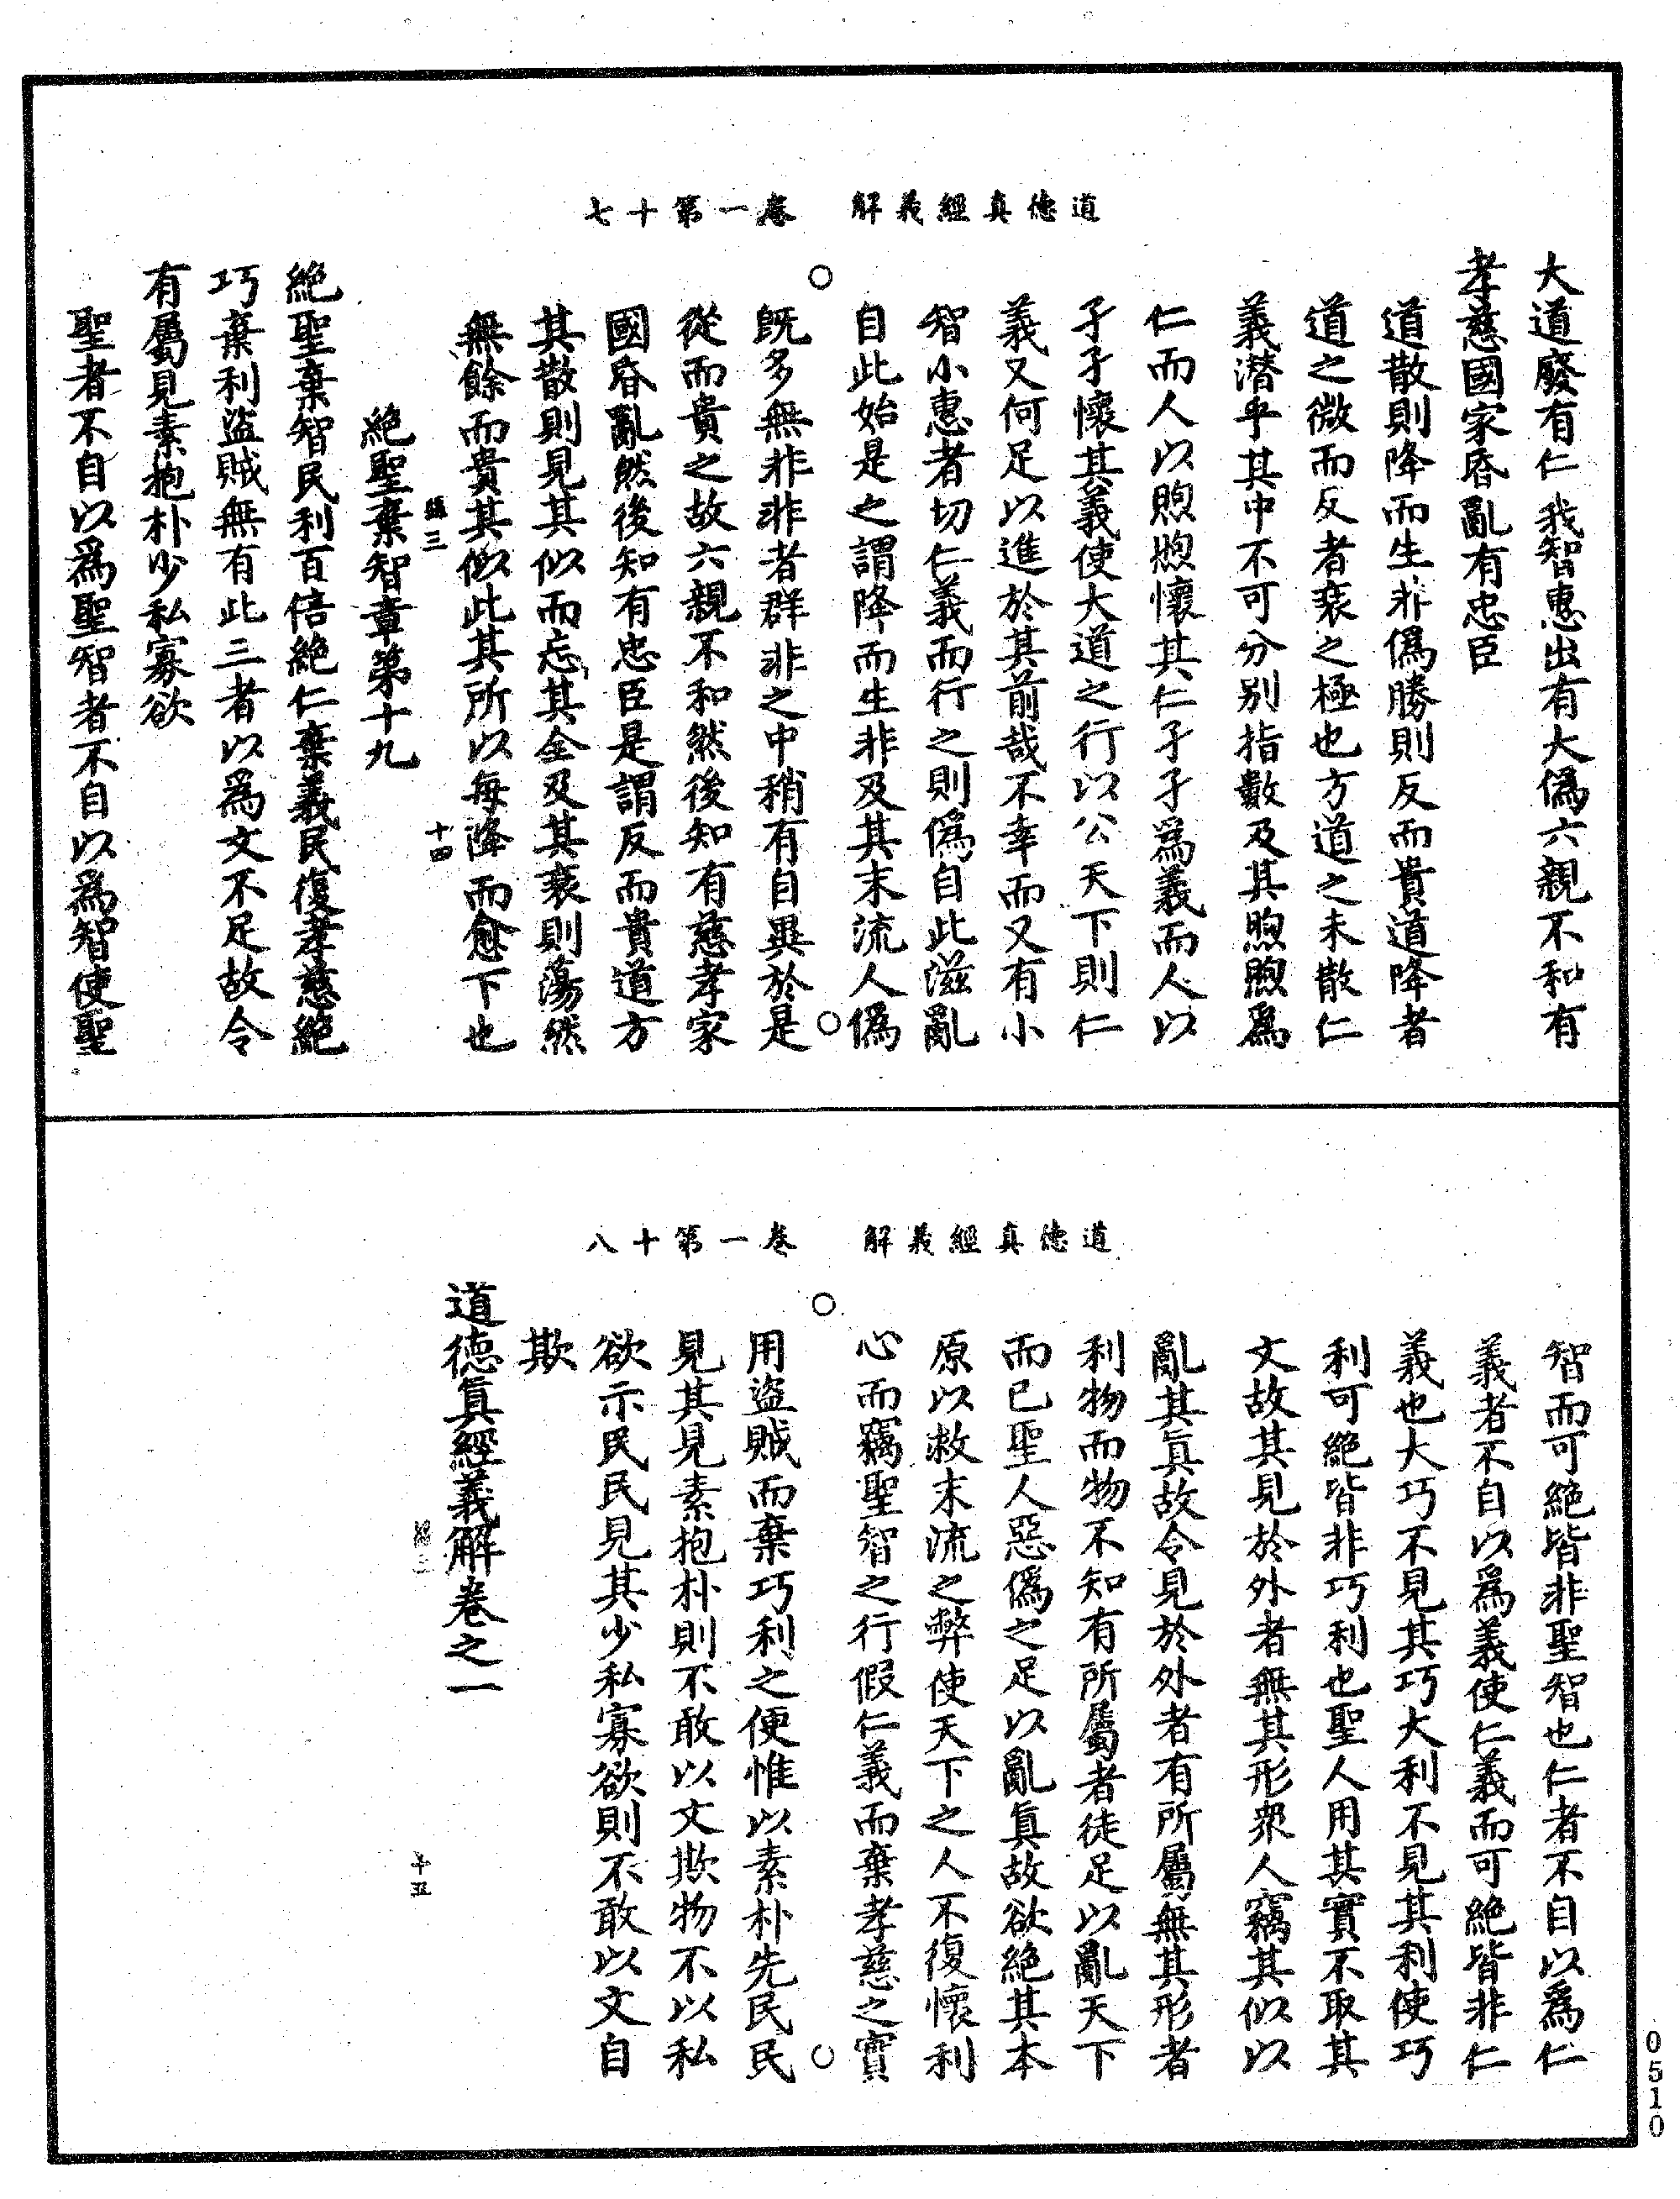 道德真經義解　卷一第十七
大道廢有仁我智惠出有大僞六親不和有
孝慈國家昏亂有忠臣
道散則降而生非僞勝則反而貴道降者
道之微而反者衰之極也方道之未散仁
義潜乎其中不可分别指數及其煦煦爲
仁而人以煦煦懷其仁孑孑爲義而人以
孑孑懷其義使大道之行以公天下則仁
義又何足以進於其前哉不幸而又有小
智小惠者切仁義而行之則僞自此滋亂
自此始是之謂降而生非及其末流人僞
既多無非非者群非之中稍有自異於是
從而貴之故六親不和然後知有慈孝家
國昏亂然後知有忠臣是謂反而貴道方
其散則見其似而忘其全及其衰則蕩然
無餘而貴其似此其所以每降而愈下也
三　十四
絶聖棄智章第十九
絶聖棄智民利百倍絶仁棄義民復孝慈絶
巧棄利盜賊無有此三者以爲文不足故令
有屬見素抱朴少私寡欲
聖者不自以爲聖智者不自以爲智使聖
道德真經義解　卷一第十八
智而可絶皆非聖智也仁者不自以爲仁
義者不自以爲義使仁義而可絶皆非仁
義也大巧不見其巧大利不見其利使巧
利可絶皆非巧利也聖人用其實不取其
文故其見於外者無其形衆人竊其似以
亂其眞故令見於外者有所屬無其形者
利物而物不知有所屬者徒足以亂天下
而已聖人惡僞之足以亂眞故欲絶其本
原以救末流之弊使天下之人不復懷利
心而竊聖智之行假仁義而棄孝慈之實
用盜賊而棄巧利之便惟以素朴先民民
見其見素抱朴則不敢以文欺物不以私
欲示民民見其少私寡欲則不敢以文自
欺
道德眞經義解卷之一
十五
0510